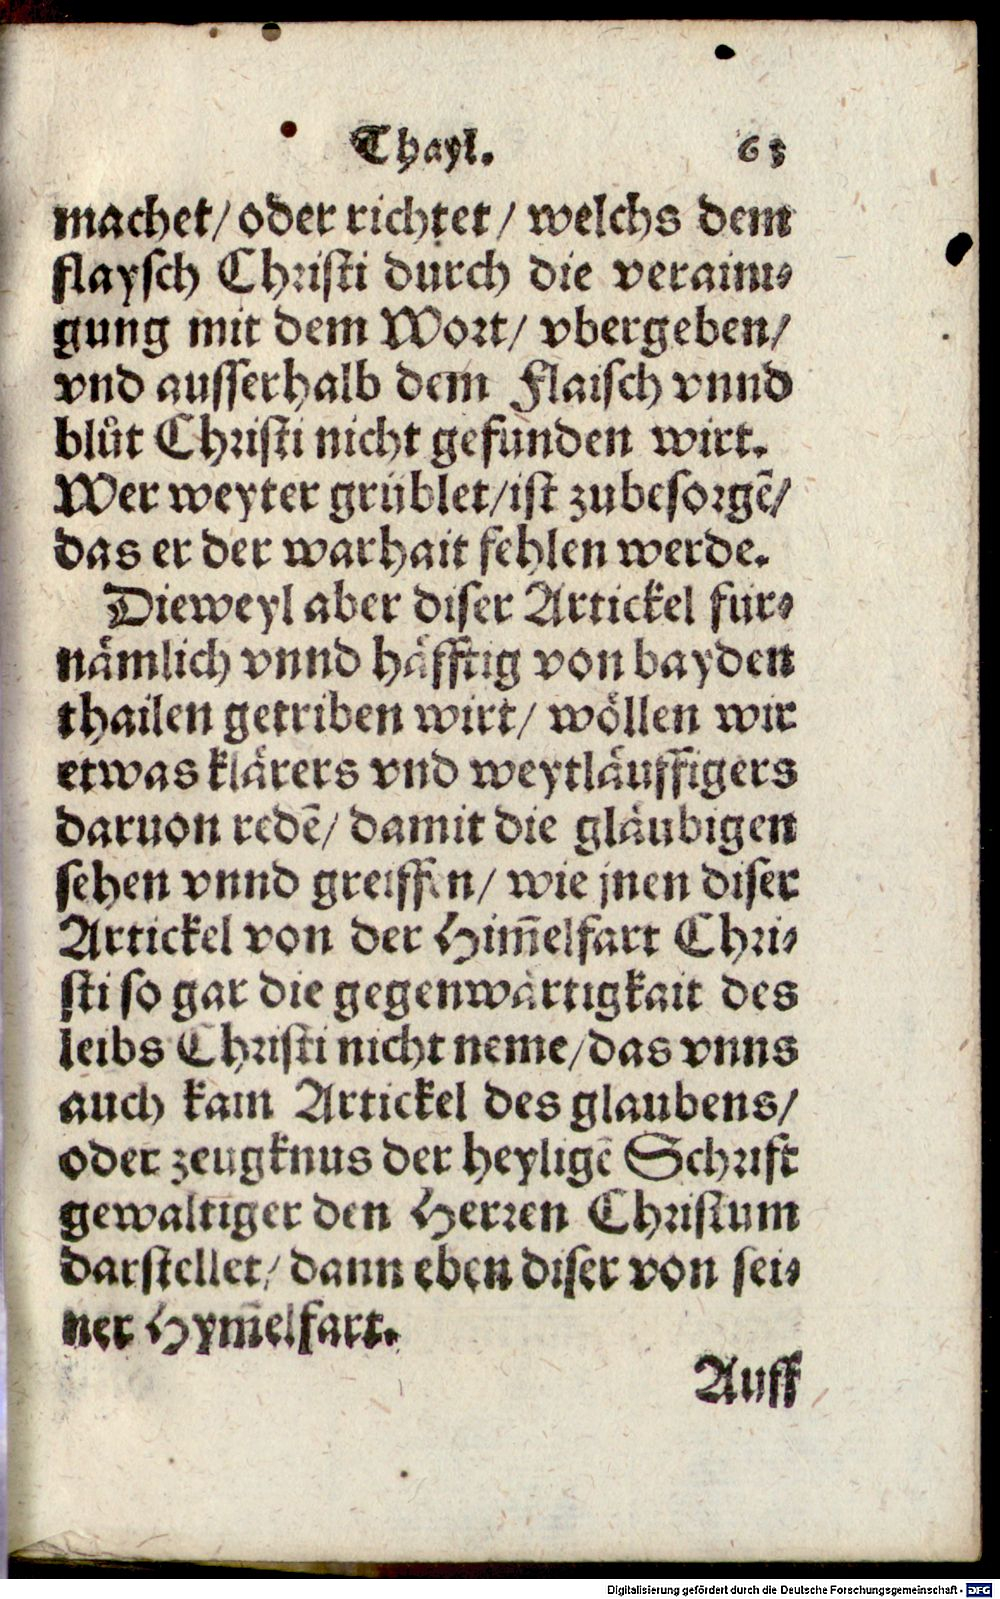 Thayl. 63
machet/ oder richtet/ welchs dem
flaysch Christi durch die veraini-
gung mit dem Wort/ vbergeben/
vnd ausserhalb dem Flaisch vnnd
blůt Christi nicht gefunden wirt.
Wer weyter grüblet/ist zubesorgē/
das er der warhait fehlen werde.
Dieweyl aber diser Artickel für-
nämlich vnnd häfftig von bayden
thailen getriben wirt/ wöllen wir
etwas klärers vnd weytläuffigers
daruon redē/ damit die gläubigen
sehen vnnd greiffen/ wie jnen diser
Artickel von der Him̄elfart Chri-
sti so gar die gegenwärtigkait des
leibs Christi nicht neme/das vnns
auch kain Artickel des glaubens/
oder zeugknus der heyligē Schrift
gewaltiger den Herren Christum
darstellet/ dann eben diser von sei-
ner Hym̄elfart.
Auff
Digitalisierung gefördert durch die Deutsche Forschungsgemeinschaft - DFG